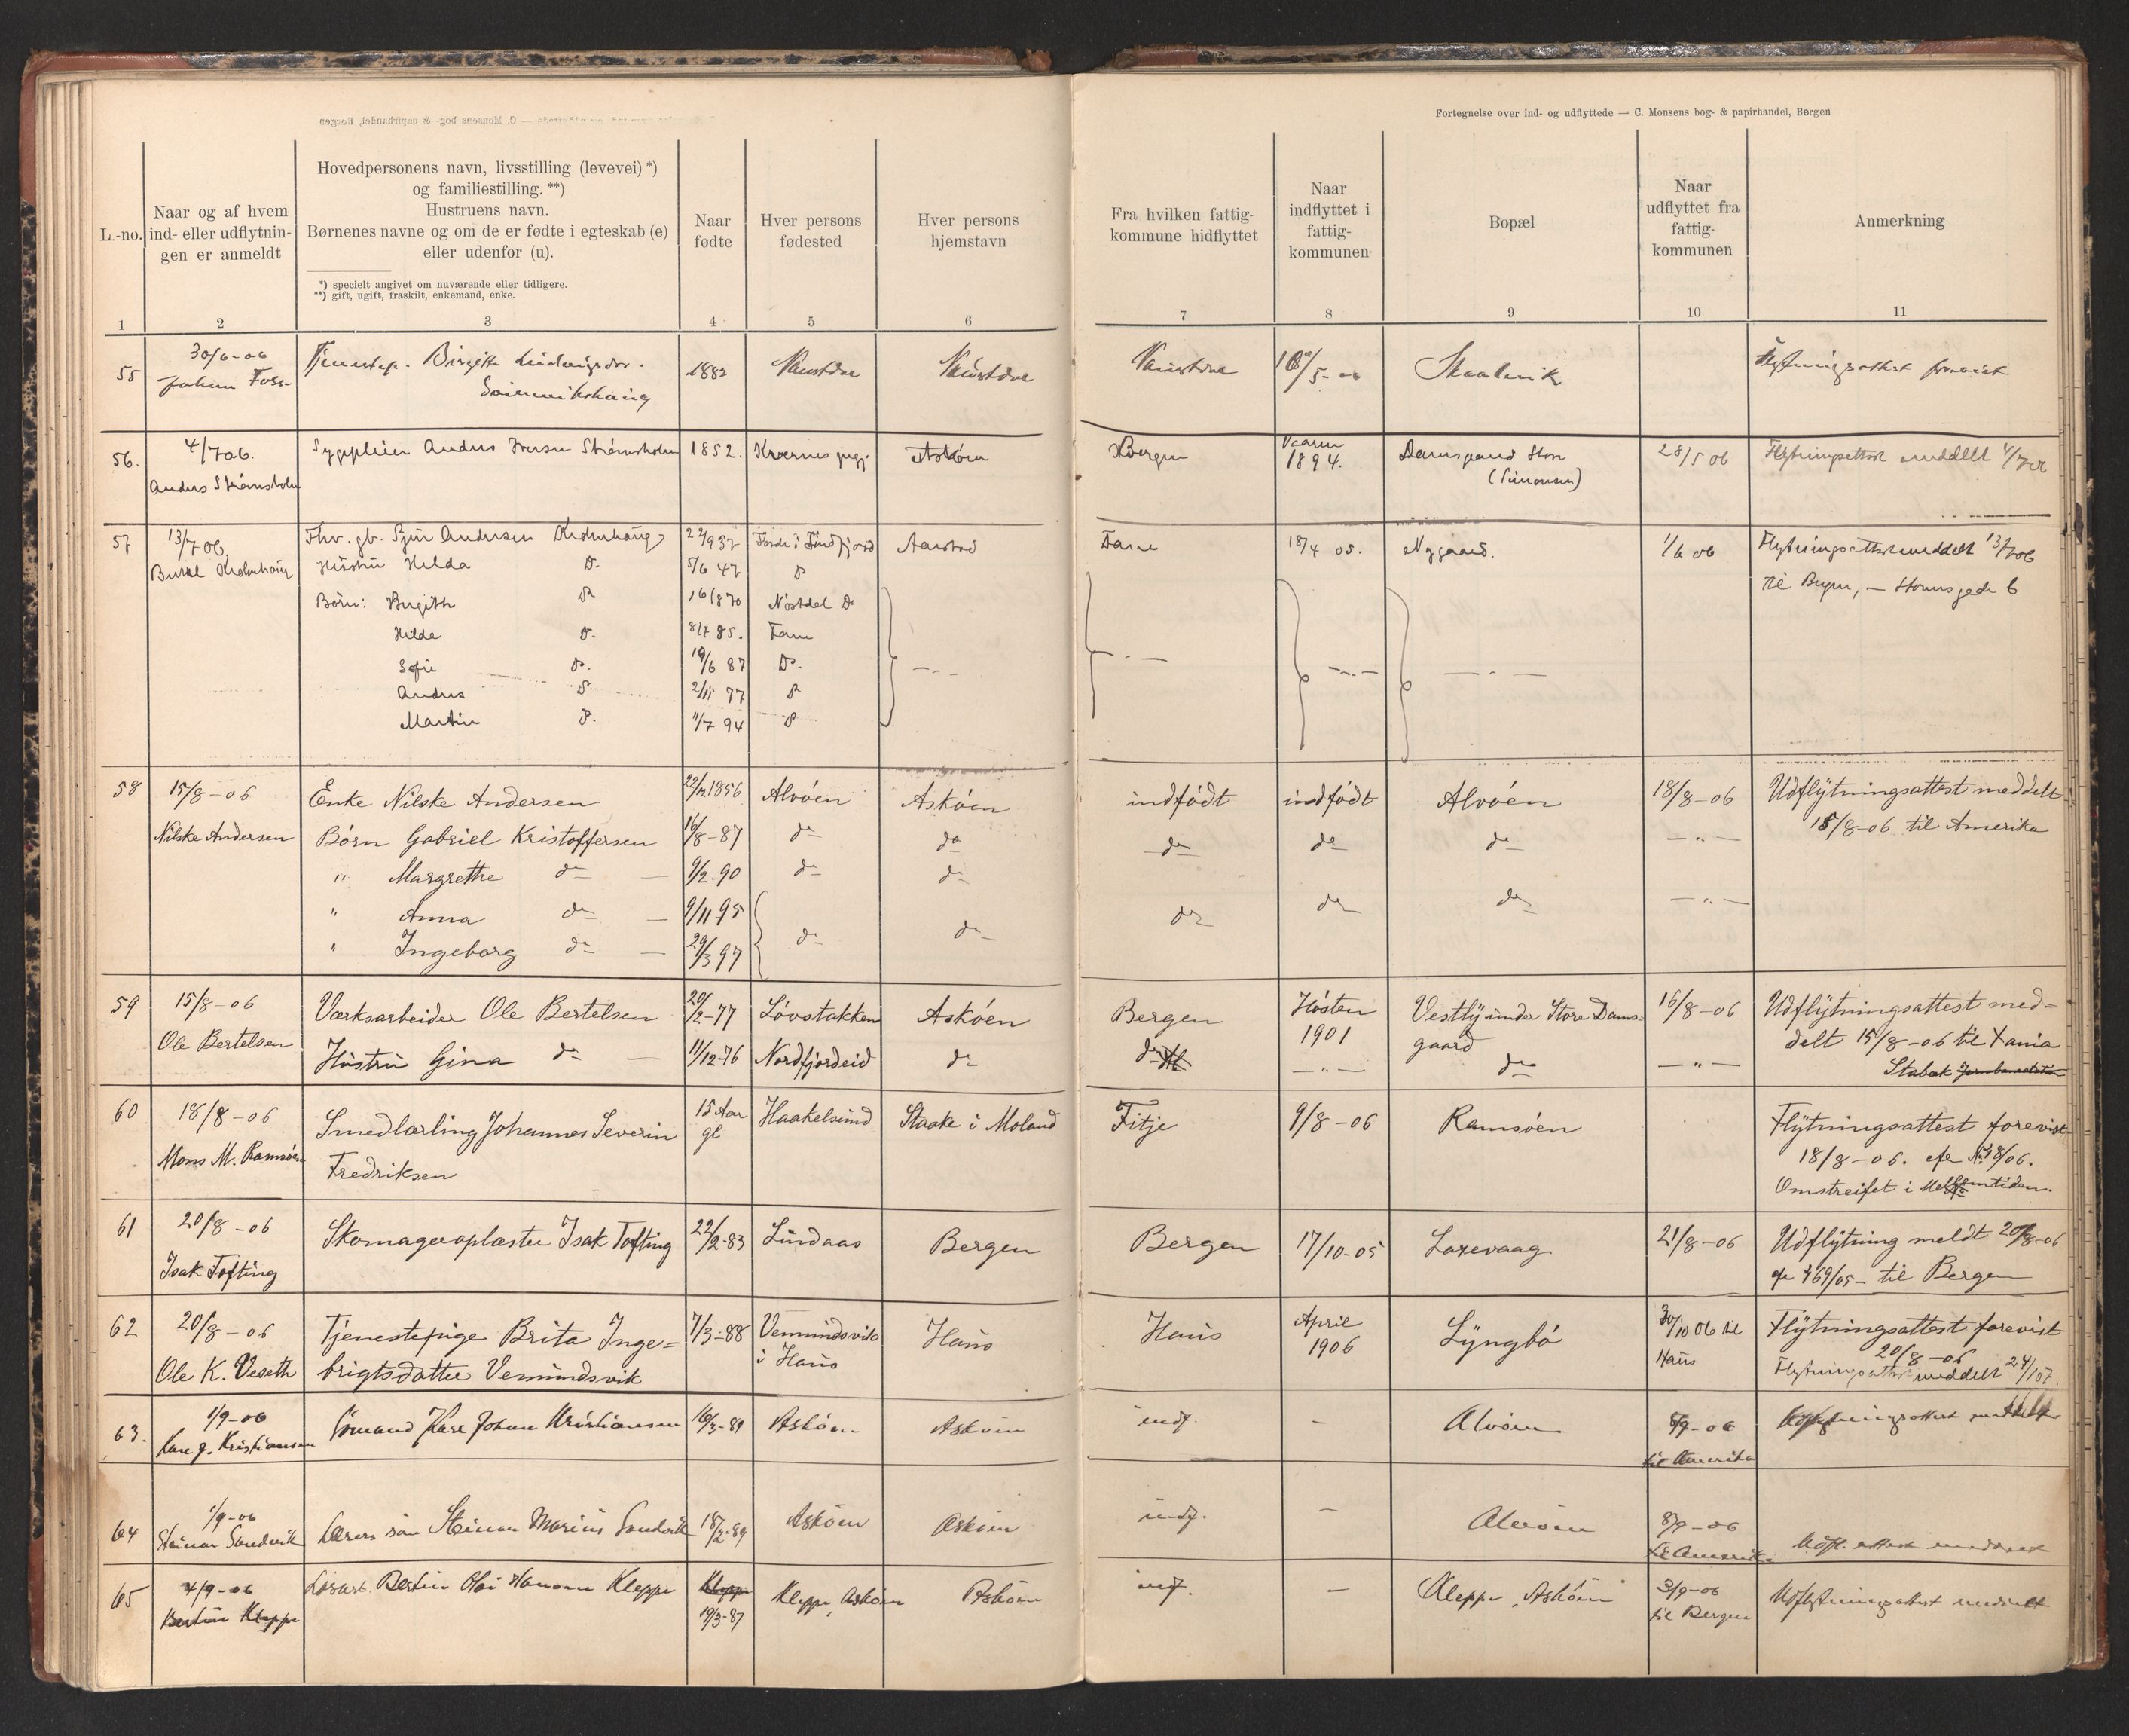 Fortegnelse over ind- og udflyttede — C. Monsens bog- & papirhandel, Bergen
L.-no.
Naar og af hvem
ind- eller udflytnin-
gen er anmeldt
Hovedpersonens navn, livsstilling (levevei) *)
og familiestilling. **)
Hustruens navn.
Børnenes navne og om de er fødte i egteskab (e)
eller udenfor (u).
*) specielt angivet om nuværende eller tidligere.
**) gift, ugift, fraskilt, enkemand, enke.
Naar
fødte
Hver persons
fødested
Hver persons
hjemstavn
Fra hvilken fattig-
kommune hidflyttet
Naar
indflyttet i
fattig-
kommunen
Bopæl
Naar
udflyttet fra
fattig-
kommunen
Anmerkning
1 2 3 4 5 6 7 8 9 10 11
55 30/6-06 Birgitte 1882 Naustdal Naustdal Naustdal Skaalevik Flytningsattest
Johan Foss
56. 4/7 06. Anders Strømsholm 1852. Askøen Bergen Vaaren 28/5 06 Flytningsattest meddelt 4/7 06
Anders Strømsholm 1894. (Simonsen)
57 13/7 06, Fhv. gb. Andersen Førde i Søndfjord 18/4 05. Nygaard. 1/6 06 Flytningsattest meddelt 13/7 06
Hustru Hilda D. 5/6 47 D
Børn: Birgitte D 16/8 70 D til Bergen, — 6
Hilde D. 8/7 85.
Sofie D. 19/6 87 D.
Anders D. D
Martin D. 11/7 94 D
58 15/8-06 Enke Nilske Andersen 22/12 1856 Alvøen Askøen indfødt indfødt Alvøen 18/8-06 Udflytningsattest meddelt
Nilske Andersen Børn Gabriel Kristoffersen 16/8-87 do do do do do —"— 15/8-06 til Amerika
" Margrethe do — 9/2-90 do do
" Anna do — 9/11 95 do do do —"—
" Ingeborg do — 29/3 97 do do
59 15/8-06 Værksarbeider Ole Bertelsen 20/2-77 Løvstakken Askøen Bergen Høsten Vestly under Store Dams- 16/8-06 Udflytningsattest med=
Ole Bertelsen 1901 gaard delt 15/8-06 til Xania
Hustru Gina do — 11/12-76 Nordfjordeid do do —"— do —"— Stabæk
60 18/8-06 Smedlærling Johannes Severin 15 Aar Haakelsund Staake i Moland Fitje 9/8-06 Ramsøen Flytningsattest forevist
Mons M. Ramsøen Fredriksen gl 18/8-06.
Omstreifet i Mellemtiden.
61 20/8-06 Skomageraplæster Isak Tofting 22/2-83 Lindaas Bergen Bergen 17/10-05 Laxevaag 21/8-06 Udflytning meldt 20/8-06
Isak Tofting til Bergen
62 20/8-06 Tjenestepige Brita Inge= 7/3-88 Vemmindsvik Haus Haus April Lyngbø 30/10 06 til Flytningsattest forevist
Ole K. Veseth brigtsdatter Vemmindsvik i Haus 1906 Haus 20/8-06
Flytningsattest meddelt
63. 1/9-06 Sømand Johan Kristiansen 16/3-89 Askøen Askøen indf. — Alvøen 8/9-06 Udflytningsattest meddelt
J. Kristiansen til Amerika
64 1/9-06 Lærers søn Steinar Marius Sandvik 18/2-89 Askøen Askøen indf. — Alvøen 8/9-06 Udfl. attest meddelt
Steinar Sandvik til Amerika
65 4/9-06 Kleppe Kleppe, Askøen Askøen indf. — Kleppe, Askøen 3/9-06 Udflytningsattest meddelt
Kleppe 19/3-87 til Bergen